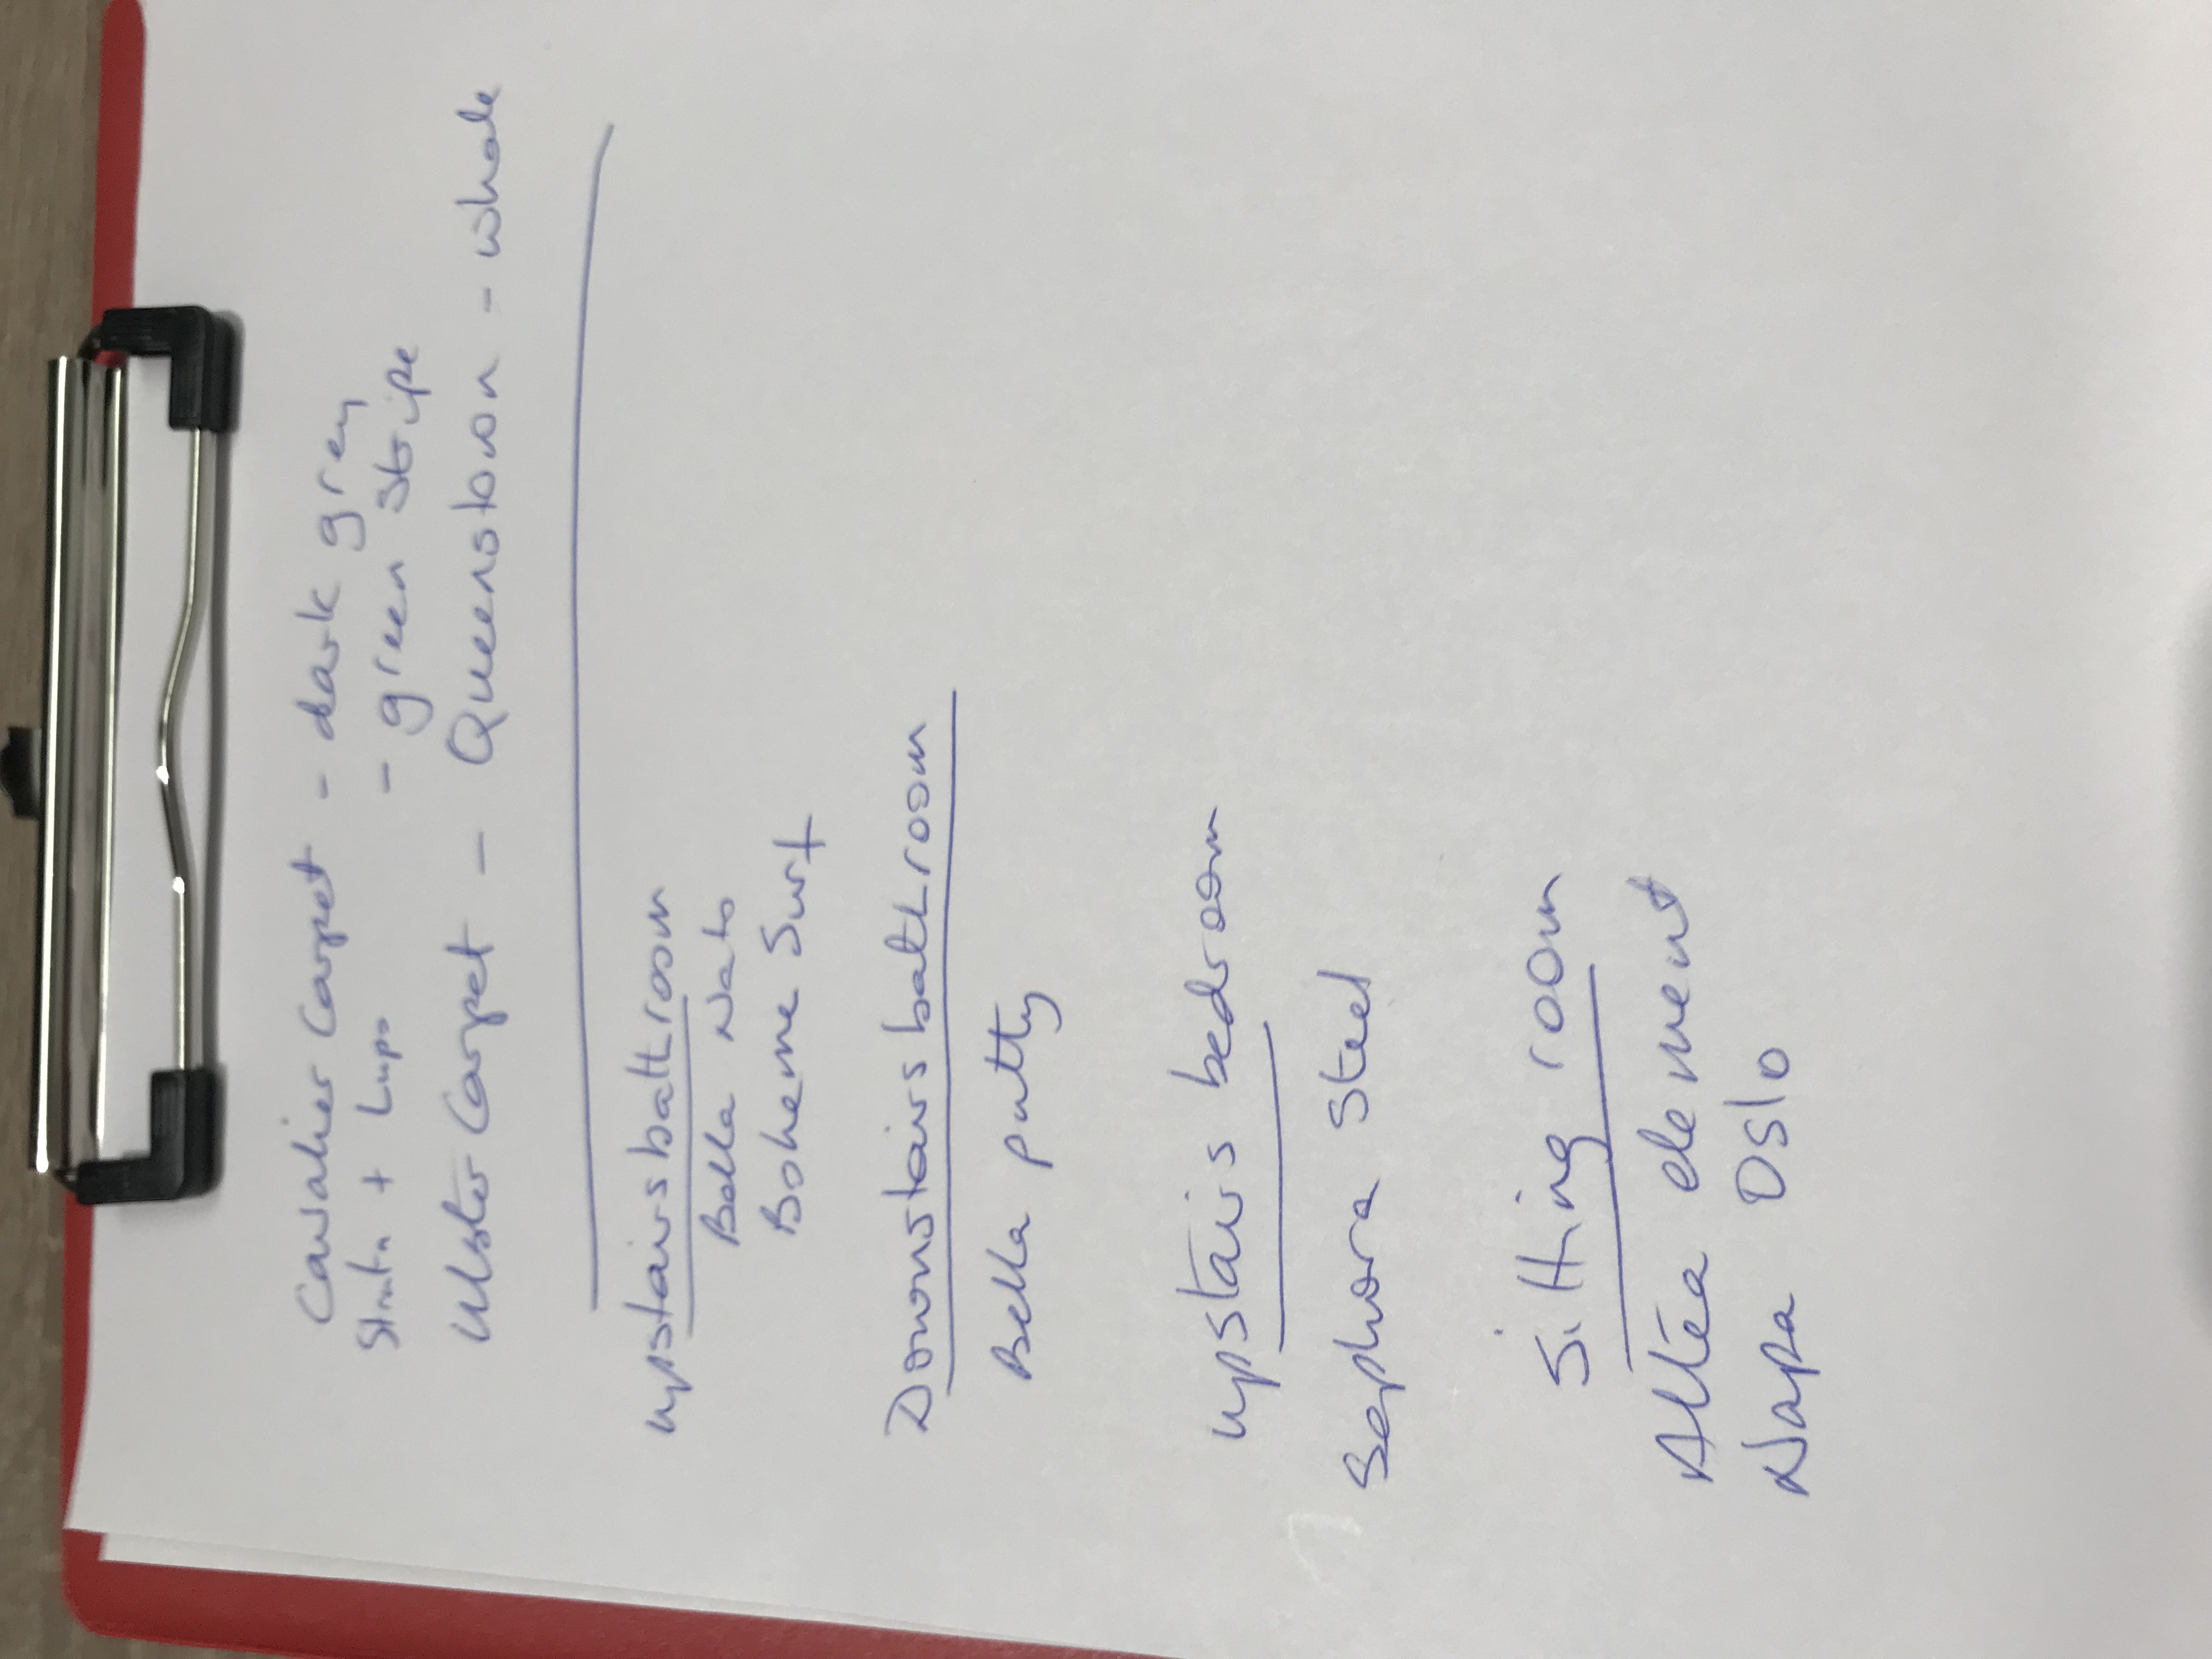 Cavalier Carpet - dark grey
Strata + Lupo - green stripe
Ulster Carpet - Queenstown - whale
upstairs bathroom
Bella Nato
Boheme Surf
Downstairs bathroom
Bella putty
upstairs bedroom
Sephora Steel
Sitting room
Altéa element
Napa Oslo